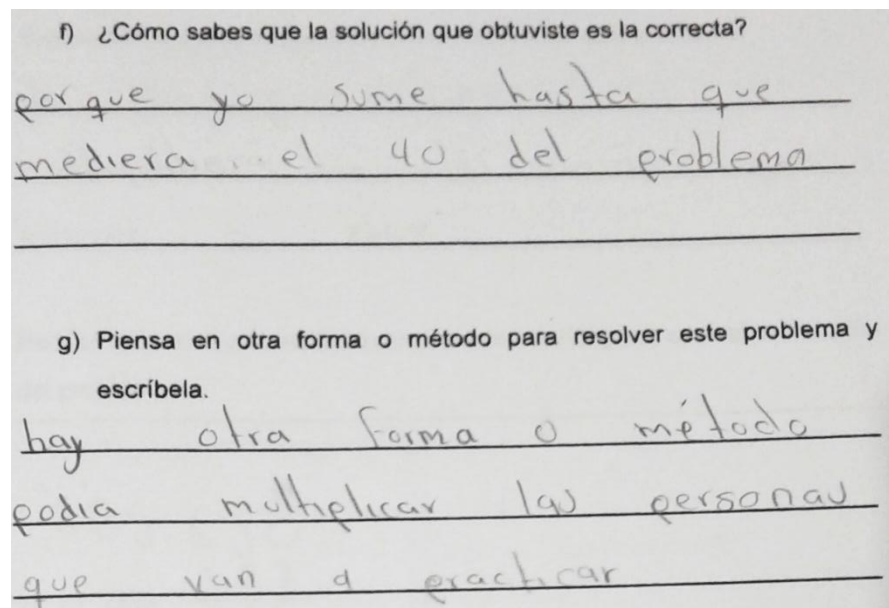 f) ¿Cómo sabes que la solución que obtuviste es la correcta?
por que yo sume hasta que
mediera el 40 del problema
g) Piensa en otra forma o método para resolver este problema y
escríbela.
hay otra forma o método
podia multiplicar las personas
que van a practicar